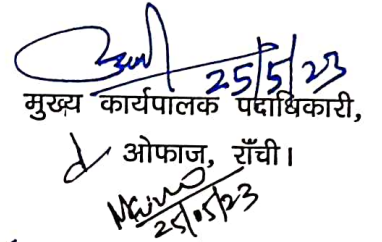 25/5/23
मुख्य कार्यपालक पदाधिकारी,
ओफाज, राँची।
25/05/23